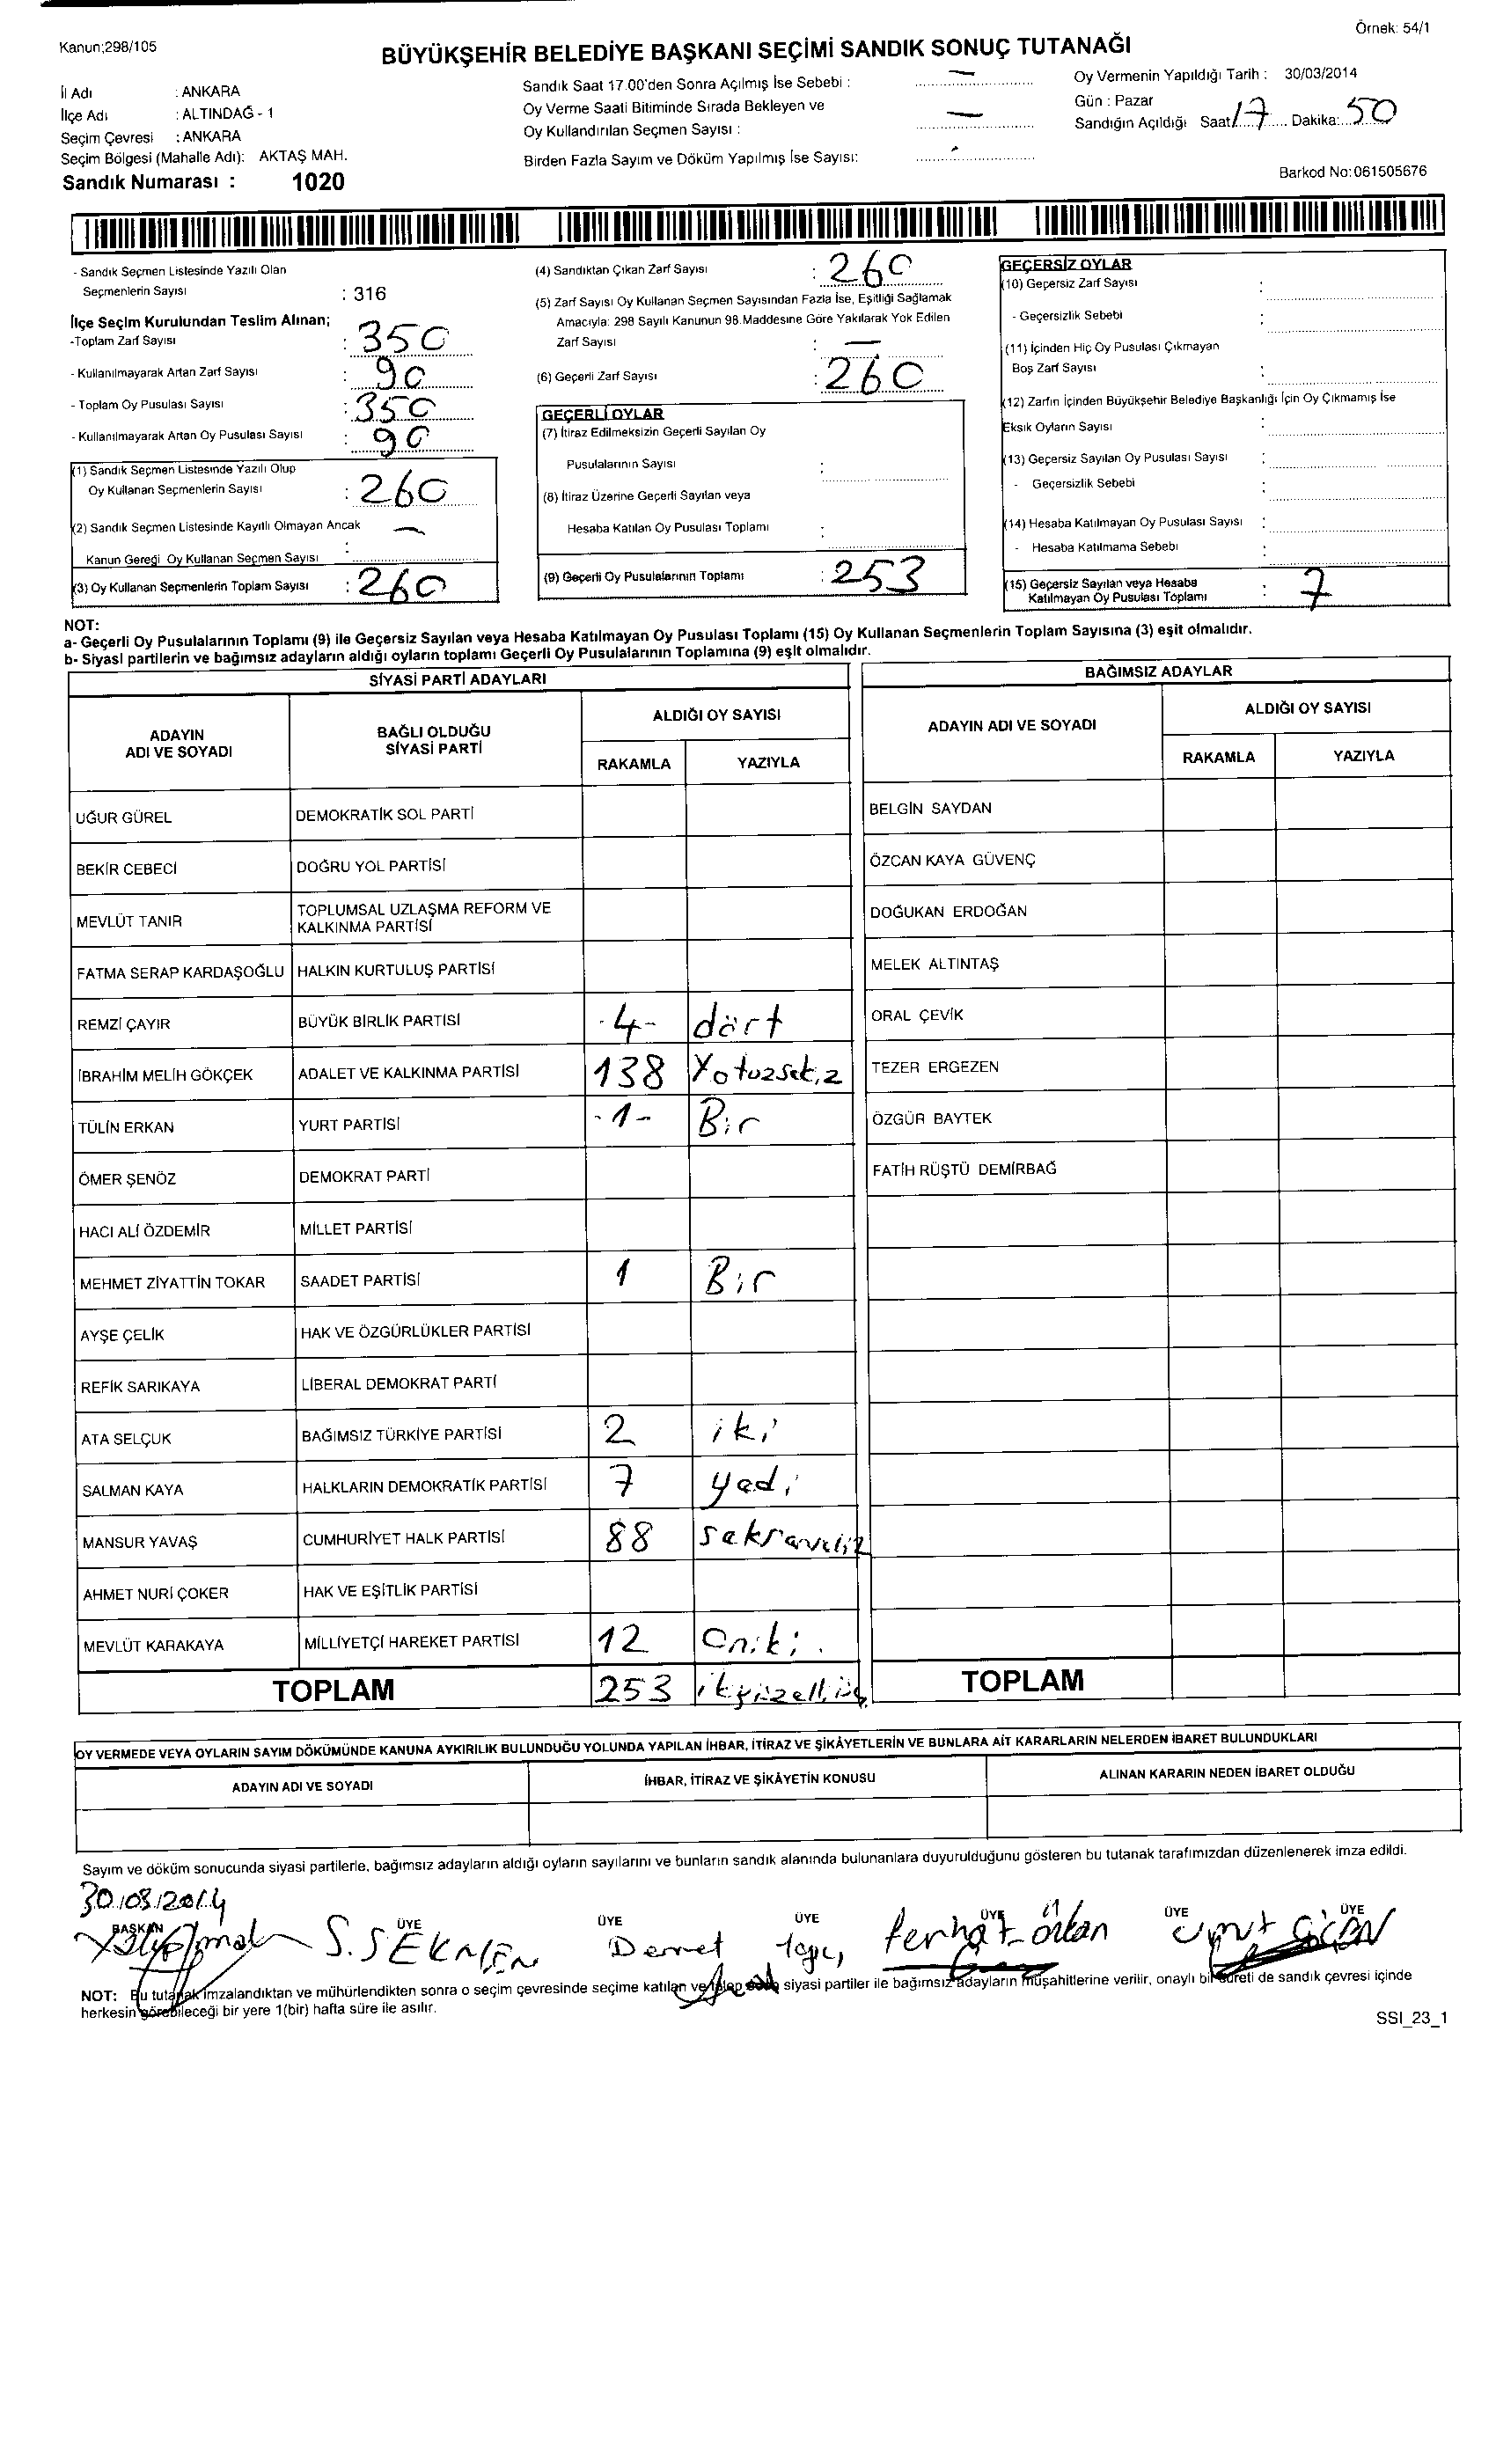 Örnek: 54/1
Kanun;298/105
BÜYÜKŞEHİR BELEDİYE BAŞKANI SEÇİMİ SANDIK SONUÇ TUTANAĞI
İl Adı : ANKARA
İlçe Adı : ALTINDAĞ - 1
Seçim Çevresi : ANKARA
Seçim Bölgesi (Mahalle Adı): AKTAŞ MAH.
Sandık Numarası : 1020
Sandık Saat 17.00'den Sonra Açılmış İse Sebebi : —
Oy Verme Saati Bitiminde Sırada Bekleyen ve
Oy Kullandırılan Seçmen Sayısı : —
Birden Fazla Sayım ve Döküm Yapılmış İse Sayısı: -
Oy Vermenin Yapıldığı Tarih : 30/03/2014
Gün : Pazar
Sandığın Açıldığı Saat 17 Dakika: 50
Barkod No:061505676
- Sandık Seçmen Listesinde Yazılı Olan
Seçmenlerin Sayısı : 316
İlçe Seçim Kurulundan Teslim Alınan;
-Toplam Zarf Sayısı : 350
- Kullanılmayarak Artan Zarf Sayısı : 90
- Toplam Oy Pusulası Sayısı : 350
- Kullanılmayarak Artan Oy Pusulası Sayısı : 90
(1) Sandık Seçmen Listesinde Yazılı Olup
Oy Kullanan Seçmenlerin Sayısı : 260
(2) Sandık Seçmen Listesinde Kayıtlı Olmayan Ancak —
Kanun Gereği Oy Kullanan Seçmen Sayısı :
(3) Oy Kullanan Seçmenlerin Toplam Sayısı : 260
(4) Sandıktan Çıkan Zarf Sayısı : 260
(5) Zarf Sayısı Oy Kullanan Seçmen Sayısından Fazla İse, Eşitliği Sağlamak
Amacıyla: 298 Sayılı Kanunun 98.Maddesine Göre Yakılarak Yok Edilen
Zarf Sayısı : —
(6) Geçerli Zarf Sayısı : 260
GEÇERLİ OYLAR
(7) İtiraz Edilmeksizin Geçerli Sayılan Oy
Pusulalarının Sayısı :
(8) İtiraz Üzerine Geçerli Sayılan veya
Hesaba Katılan Oy Pusulası Toplamı :
(9) Geçerli Oy Pusulalarının Toplamı : 253
GEÇERSİZ OYLAR
(10) Geçersiz Zarf Sayısı :
- Geçersizlik Sebebi :
(11) İçinden Hiç Oy Pusulası Çıkmayan
Boş Zarf Sayısı :
(12) Zarfın İçinden Büyükşehir Belediye Başkanlığı İçin Oy Çıkmamış İse
Eksik Oyların Sayısı :
(13) Geçersiz Sayılan Oy Pusulası Sayısı :
- Geçersizlik Sebebi :
(14) Hesaba Katılmayan Oy Pusulası Sayısı :
- Hesaba Katılmama Sebebi :
(15) Geçersiz Sayılan veya Hesaba
Katılmayan Oy Pusulası Toplamı : 7
NOT:
a- Geçerli Oy Pusulalarının Toplamı (9) ile Geçersiz Sayılan veya Hesaba Katılmayan Oy Pusulası Toplamı (15) Oy Kullanan Seçmenlerin Toplam Sayısına (3) eşit olmalıdır.
b- Siyasi partilerin ve bağımsız adayların aldığı oyların toplamı Geçerli Oy Pusulalarının Toplamına (9) eşit olmalıdır.
SİYASİ PARTİ ADAYLARI
ADAYIN ADI VE SOYADI
BAĞLI OLDUĞU SİYASİ PARTİ
ALDIĞI OY SAYISI
RAKAMLA YAZIYLA
UĞUR GÜREL DEMOKRATİK SOL PARTİ
BEKİR CEBECİ DOĞRU YOL PARTİSİ
MEVLÜT TANIR TOPLUMSAL UZLAŞMA REFORM VE
KALKINMA PARTİSİ
FATMA SERAP KARDAŞOĞLU HALKIN KURTULUŞ PARTİSİ
REMZİ ÇAYIR BÜYÜK BİRLİK PARTİSİ -4- dört
İBRAHİM MELİH GÖKÇEK ADALET VE KALKINMA PARTİSİ 138 Yotuzsekiz
TÜLİN ERKAN YURT PARTİSİ -1- Bir
ÖMER ŞENÖZ DEMOKRAT PARTİ
HACI ALİ ÖZDEMİR MİLLET PARTİSİ
MEHMET ZİYATTİN TOKAR SAADET PARTİSİ 1 Bir
AYŞE ÇELİK HAK VE ÖZGÜRLÜKLER PARTİSİ
REFİK SARIKAYA LİBERAL DEMOKRAT PARTİ
ATA SELÇUK BAĞIMSIZ TÜRKİYE PARTİSİ 2 iki
SALMAN KAYA HALKLARIN DEMOKRATİK PARTİSİ 7 yedi
MANSUR YAVAŞ CUMHURİYET HALK PARTİSİ 88
AHMET NURİ ÇOKER HAK VE EŞİTLİK PARTİSİ
MEVLÜT KARAKAYA MİLLİYETÇİ HAREKET PARTİSİ 12 Oniki.
TOPLAM 253 ikiyüzelliüç
BAĞIMSIZ ADAYLAR
ADAYIN ADI VE SOYADI
ALDIĞI OY SAYISI
RAKAMLA YAZIYLA
BELGİN SAYDAN
ÖZCAN KAYA GÜVENÇ
DOĞUKAN ERDOĞAN
MELEK ALTINTAŞ
ORAL ÇEVİK
TEZER ERGEZEN
ÖZGÜR BAYTEK
FATİH RÜŞTÜ DEMİRBAĞ
TOPLAM
OY VERMEDE VEYA OYLARIN SAYIM DÖKÜMÜNDE KANUNA AYKIRILIK BULUNDUĞU YOLUNDA YAPILAN İHBAR, İTİRAZ VE ŞİKÂYETLERİN VE BUNLARA AİT KARARLARIN NELERDEN İBARET BULUNDUKLARI
ADAYIN ADI VE SOYADI İHBAR, İTİRAZ VE ŞİKÂYETİN KONUSU ALINAN KARARIN NEDEN İBARET OLDUĞU
Sayım ve döküm sonucunda siyasi partilerle, bağımsız adayların aldığı oyların sayılarını ve bunların sandık alanında bulunanlara duyurulduğunu gösteren bu tutanak tarafımızdan düzenlenerek imza edildi.
30/03/2014
BAŞKAN ÜYE ÜYE ÜYE ÜYE ÜYE ÜYE
S. SEKMEN Demet Ferhat Umut
NOT: Bu tutanak imzalandıktan ve mühürlendikten sonra o seçim çevresinde seçime katılan ve talep siyasi partiler ile bağımsız adayların müşahitlerine verilir, onaylı bir sureti de sandık çevresi içinde
herkesin görebileceği bir yere 1(bir) hafta süre ile asılır.
SSI_23_1